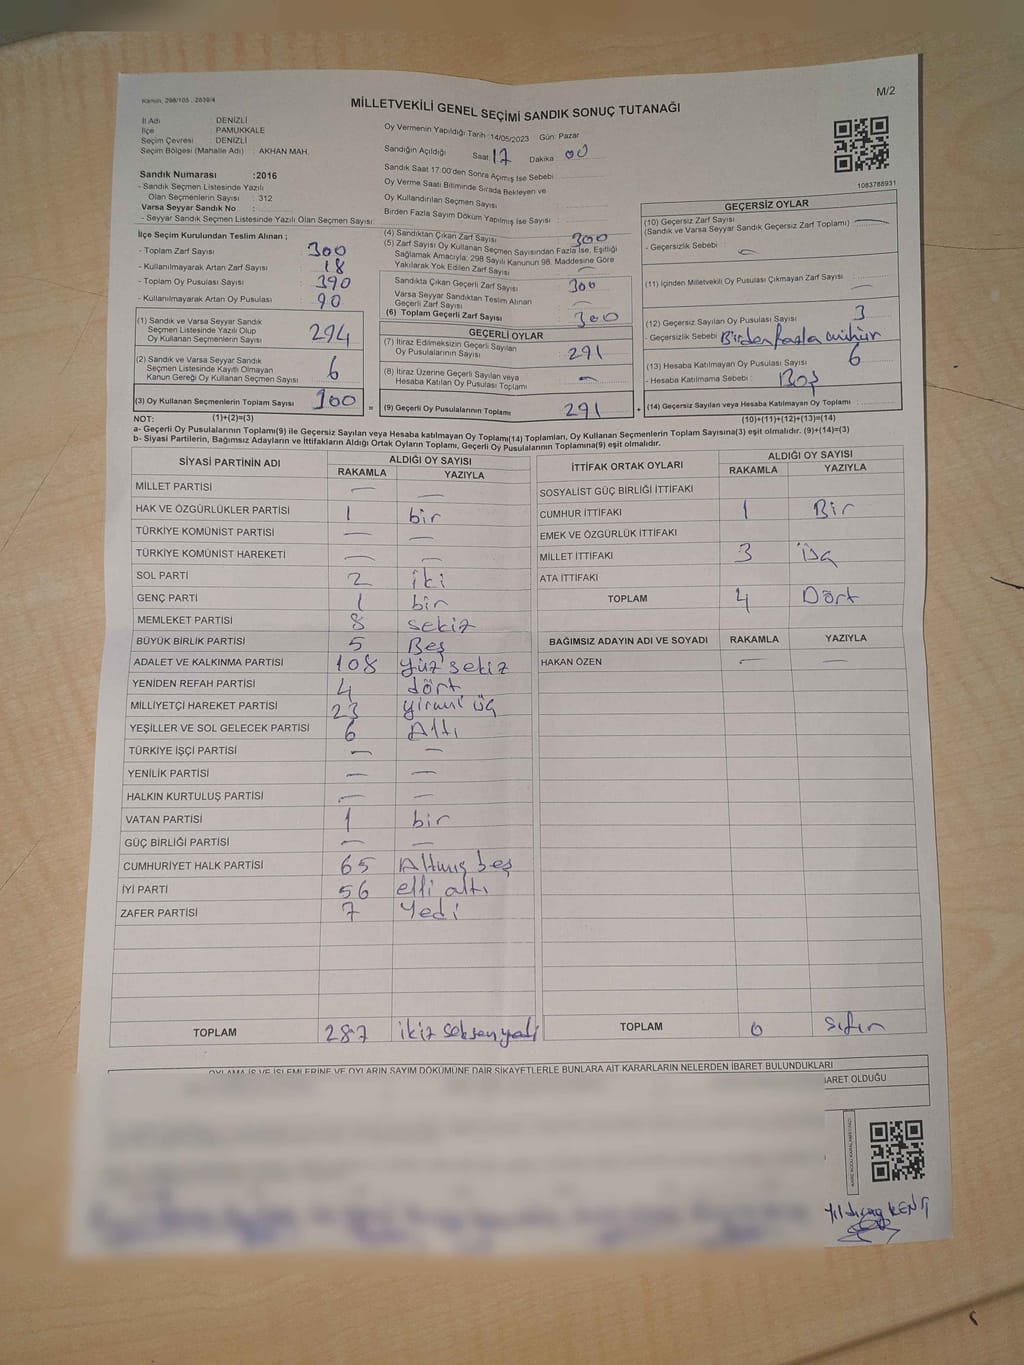 Kanun, 298/105 , 2839/4
M/2
MİLLETVEKİLİ GENEL SEÇİMİ SANDIK SONUÇ TUTANAĞI
İl Adı : DENİZLİ
İlçe : PAMUKKALE
Seçim Çevresi : DENİZLİ
Seçim Bölgesi (Mahalle Adı) : AKHAN MAH.
Oy Vermenin Yapıldığı Tarih :14/05/2023 Gün: Pazar
Sandığın Açıldığı Saat 17 Dakika 00
Sandık Saat 17.00'den Sonra Açılmış İse Sebebi
Oy Verme Saati Bitiminde Sırada Bekleyen ve
Oy Kullandırılan Seçmen Sayısı
Birden Fazla Sayım Döküm Yapılmış İse Sayısı
Sandık Numarası :2016
- Sandık Seçmen Listesinde Yazılı
Olan Seçmenlerin Sayısı : 312
Varsa Seyyar Sandık No :
- Seyyar Sandık Seçmen Listesinde Yazılı Olan Seçmen Sayısı:
1083788931
İlçe Seçim Kurulundan Teslim Alınan ;
- Toplam Zarf Sayısı : 300
- Kullanılmayarak Artan Zarf Sayısı : 18
- Toplam Oy Pusulası Sayısı : 390
- Kullanılmayarak Artan Oy Pusulası : 90
(1) Sandık ve Varsa Seyyar Sandık
Seçmen Listesinde Yazılı Olup
Oy Kullanan Seçmenlerin Sayısı 294
(2) Sandık ve Varsa Seyyar Sandık
Seçmen Listesinde Kayıtlı Olmayan
Kanun Gereği Oy Kullanan Seçmen Sayısı 6
(3) Oy Kullanan Seçmenlerin Toplam Sayısı 300 =
(4) Sandıktan Çıkan Zarf Sayısı 300
(5) Zarf Sayısı Oy Kullanan Seçmen Sayısından Fazla İse, Eşitliği
Sağlamak Amacıyla; 298 Sayılı Kanunun 98. Maddesine Göre
Yakılarak Yok Edilen Zarf Sayısı —
Sandıkta Çıkan Geçerli Zarf Sayısı 300
Varsa Seyyar Sandıktan Teslim Alınan
Geçerli Zarf Sayısı —
(6) Toplam Geçerli Zarf Sayısı 300
GEÇERLİ OYLAR
(7) İtiraz Edilmeksizin Geçerli Sayılan
Oy Pusulalarının Sayısı 291
(8) İtiraz Üzerine Geçerli Sayılan veya
Hesaba Katılan Oy Pusulası Toplamı —
(9) Geçerli Oy Pusulalarının Toplamı 291 +
GEÇERSİZ OYLAR
(10) Geçersiz Zarf Sayısı —
(Sandık ve Varsa Seyyar Sandık Geçersiz Zarf Toplamı)
- Geçersizlik Sebebi —
(11) İçinden Milletvekili Oy Pusulası Çıkmayan Zarf Sayısı —
(12) Geçersiz Sayılan Oy Pusulası Sayısı 3
- Geçersizlik Sebebi Birden fazla mühür
(13) Hesaba Katılmayan Oy Pusulası Sayısı 6
- Hesaba Katılmama Sebebi : Boş
(14) Geçersiz Sayılan veya Hesaba Katılmayan Oy Toplamı :
NOT: (1)+(2)=(3) (10)+(11)+(12)+(13)=(14)
a- Geçerli Oy Pusulalarının Toplamı(9) ile Geçersiz Sayılan veya Hesaba katılmayan Oy Toplamı(14) Toplamları, Oy Kullanan Seçmenlerin Toplam Sayısına(3) eşit olmalıdır. (9)+(14)=(3)
b- Siyasi Partilerin, Bağımsız Adayların ve İttifakların Aldığı Ortak Oyların Toplamı, Geçerli Oy Pusulalarının Toplamına(9) eşit olmalıdır.
SİYASİ PARTİNİN ADI ALDIĞI OY SAYISI
RAKAMLA YAZIYLA
MİLLET PARTİSİ — —
HAK VE ÖZGÜRLÜKLER PARTİSİ 1 bir
TÜRKİYE KOMÜNİST PARTİSİ — —
TÜRKİYE KOMÜNİST HAREKETİ — —
SOL PARTİ 2 iki
GENÇ PARTİ 1 bir
MEMLEKET PARTİSİ 8 sekiz
BÜYÜK BİRLİK PARTİSİ 5 Beş
ADALET VE KALKINMA PARTİSİ 108 yüz sekiz
YENİDEN REFAH PARTİSİ 4 dört
MİLLİYETÇİ HAREKET PARTİSİ 23 yirmi üç
YEŞİLLER VE SOL GELECEK PARTİSİ 6 Altı
TÜRKİYE İŞÇİ PARTİSİ — —
YENİLİK PARTİSİ — —
HALKIN KURTULUŞ PARTİSİ — —
VATAN PARTİSİ 1 bir
GÜÇ BİRLİĞİ PARTİSİ — —
CUMHURİYET HALK PARTİSİ 65 Altmış beş
İYİ PARTİ 56 elli altı
ZAFER PARTİSİ 7 Yedi
TOPLAM 287 ikiz seksen yedi
İTTİFAK ORTAK OYLARI ALDIĞI OY SAYISI
RAKAMLA YAZIYLA
SOSYALİST GÜÇ BİRLİĞİ İTTİFAKI
CUMHUR İTTİFAKI 1 Bir
EMEK VE ÖZGÜRLÜK İTTİFAKI
MİLLET İTTİFAKI 3 üç
ATA İTTİFAKI
TOPLAM 4 Dört
BAĞIMSIZ ADAYIN ADI VE SOYADI RAKAMLA YAZIYLA
HAKAN ÖZEN — —
TOPLAM 0 sıfır
OYLAMA İŞ VE İŞLEMLERİNE VE OYLARIN SAYIM DÖKÜMÜNE DAİR ŞİKAYETLERLE BUNLARA AİT KARARLARIN NELERDEN İBARET BULUNDUKLARI
BARET OLDUĞU